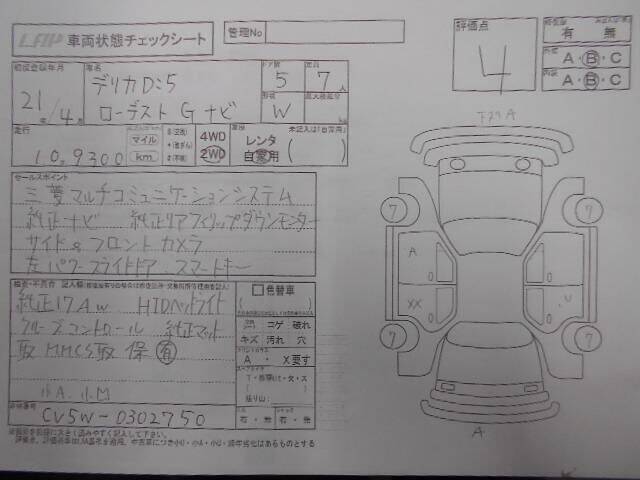 LAP 車両状態チェックシート
管理No
評価点
4
有 無
A・B・C
A・B・C
初度登録年月
車名
ドア数
定員
21年/4月
デリカD:5
ローデスト G ナビ
5
7人
W
走行
10,9300
マイル
km
4WD
2WD
レンタ
自家用
( )
セールスポイント
三菱マルチコミュニケーションシステム
純正ナビ 純正リアフィリップダウンモニター
サイド&フロントカメラ
左パワースライドドア スマートキー
純正17Aw HIDヘッドライト
クルーズコントロール 純正マット
取 MMCS取 保 有
小A. 小M
色替車
コゲ 破れ
キズ 汚れ 穴
A・ X要す
有・無
有・無
車台番号
CV5W-0302750
下スリA
7
7
7
7
A
XX
U
A